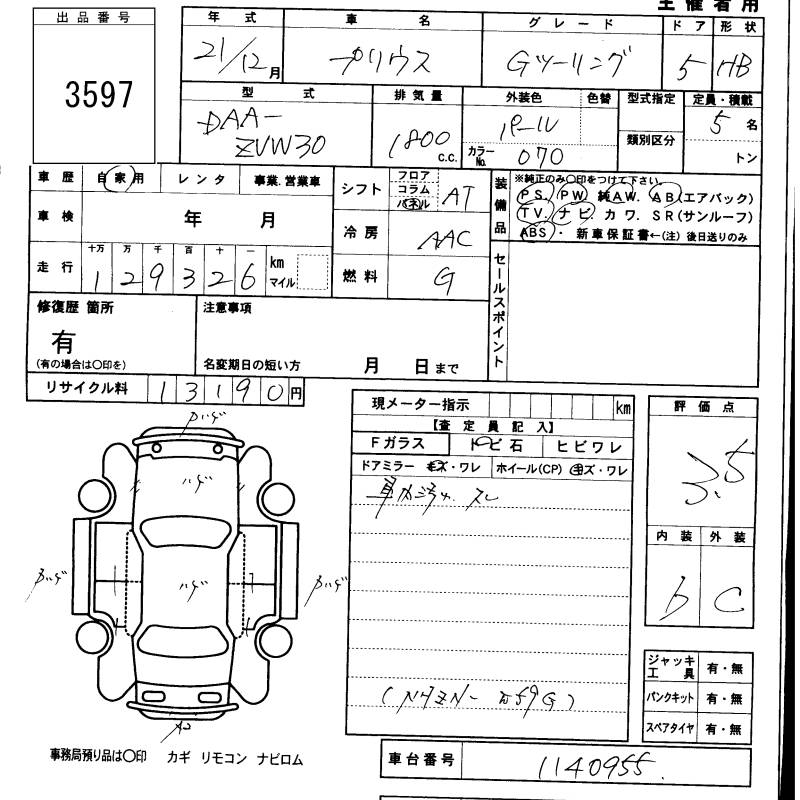 主催者用
出品番号
3597
年式 車名 グレード ドア 形状
21/12月 プリウス Gツーリング 5 HB
型式 排気量 外装色 色替 型式指定 定員・積載
DAA-ZVW30 1800 C.C. パール 類別区分 5名
カラーNo. 070 トン
車歴 自家用 レンタ 事業.営業車
シフト フロア コラム パネル AT
装備品 ※純正のみ〇印をつけて下さい。
PS. PW. 純AW. AB(エアバック)
TV. ナビ. カワ. SR(サンルーフ)
ABS・新車保証書←(注)後日送りのみ
車検 年 月
冷房 AAC
走行 十万 万 千 百 十 一 km マイル
1 2 9 3 2 6
燃料 G
セールスポイント
修復歴 箇所
有
(有の場合は〇印を)
注意事項
名変期日の短い方 月 日まで
リサイクル料 13190円
現メーター指示 km
【査定員記入】
Fガラス トビ石 ヒビワレ
ドアミラー キズ・ワレ ホイール(CP) キズ・ワレ
評価点
3.5
内装 外装
b C
ハゲ
ハゲ
ジャッキ工具 有・無
パンクキット 有・無
スペアタイヤ 有・無
事務局預り品は〇印 カギ リモコン ナビロム
車台番号 1140955